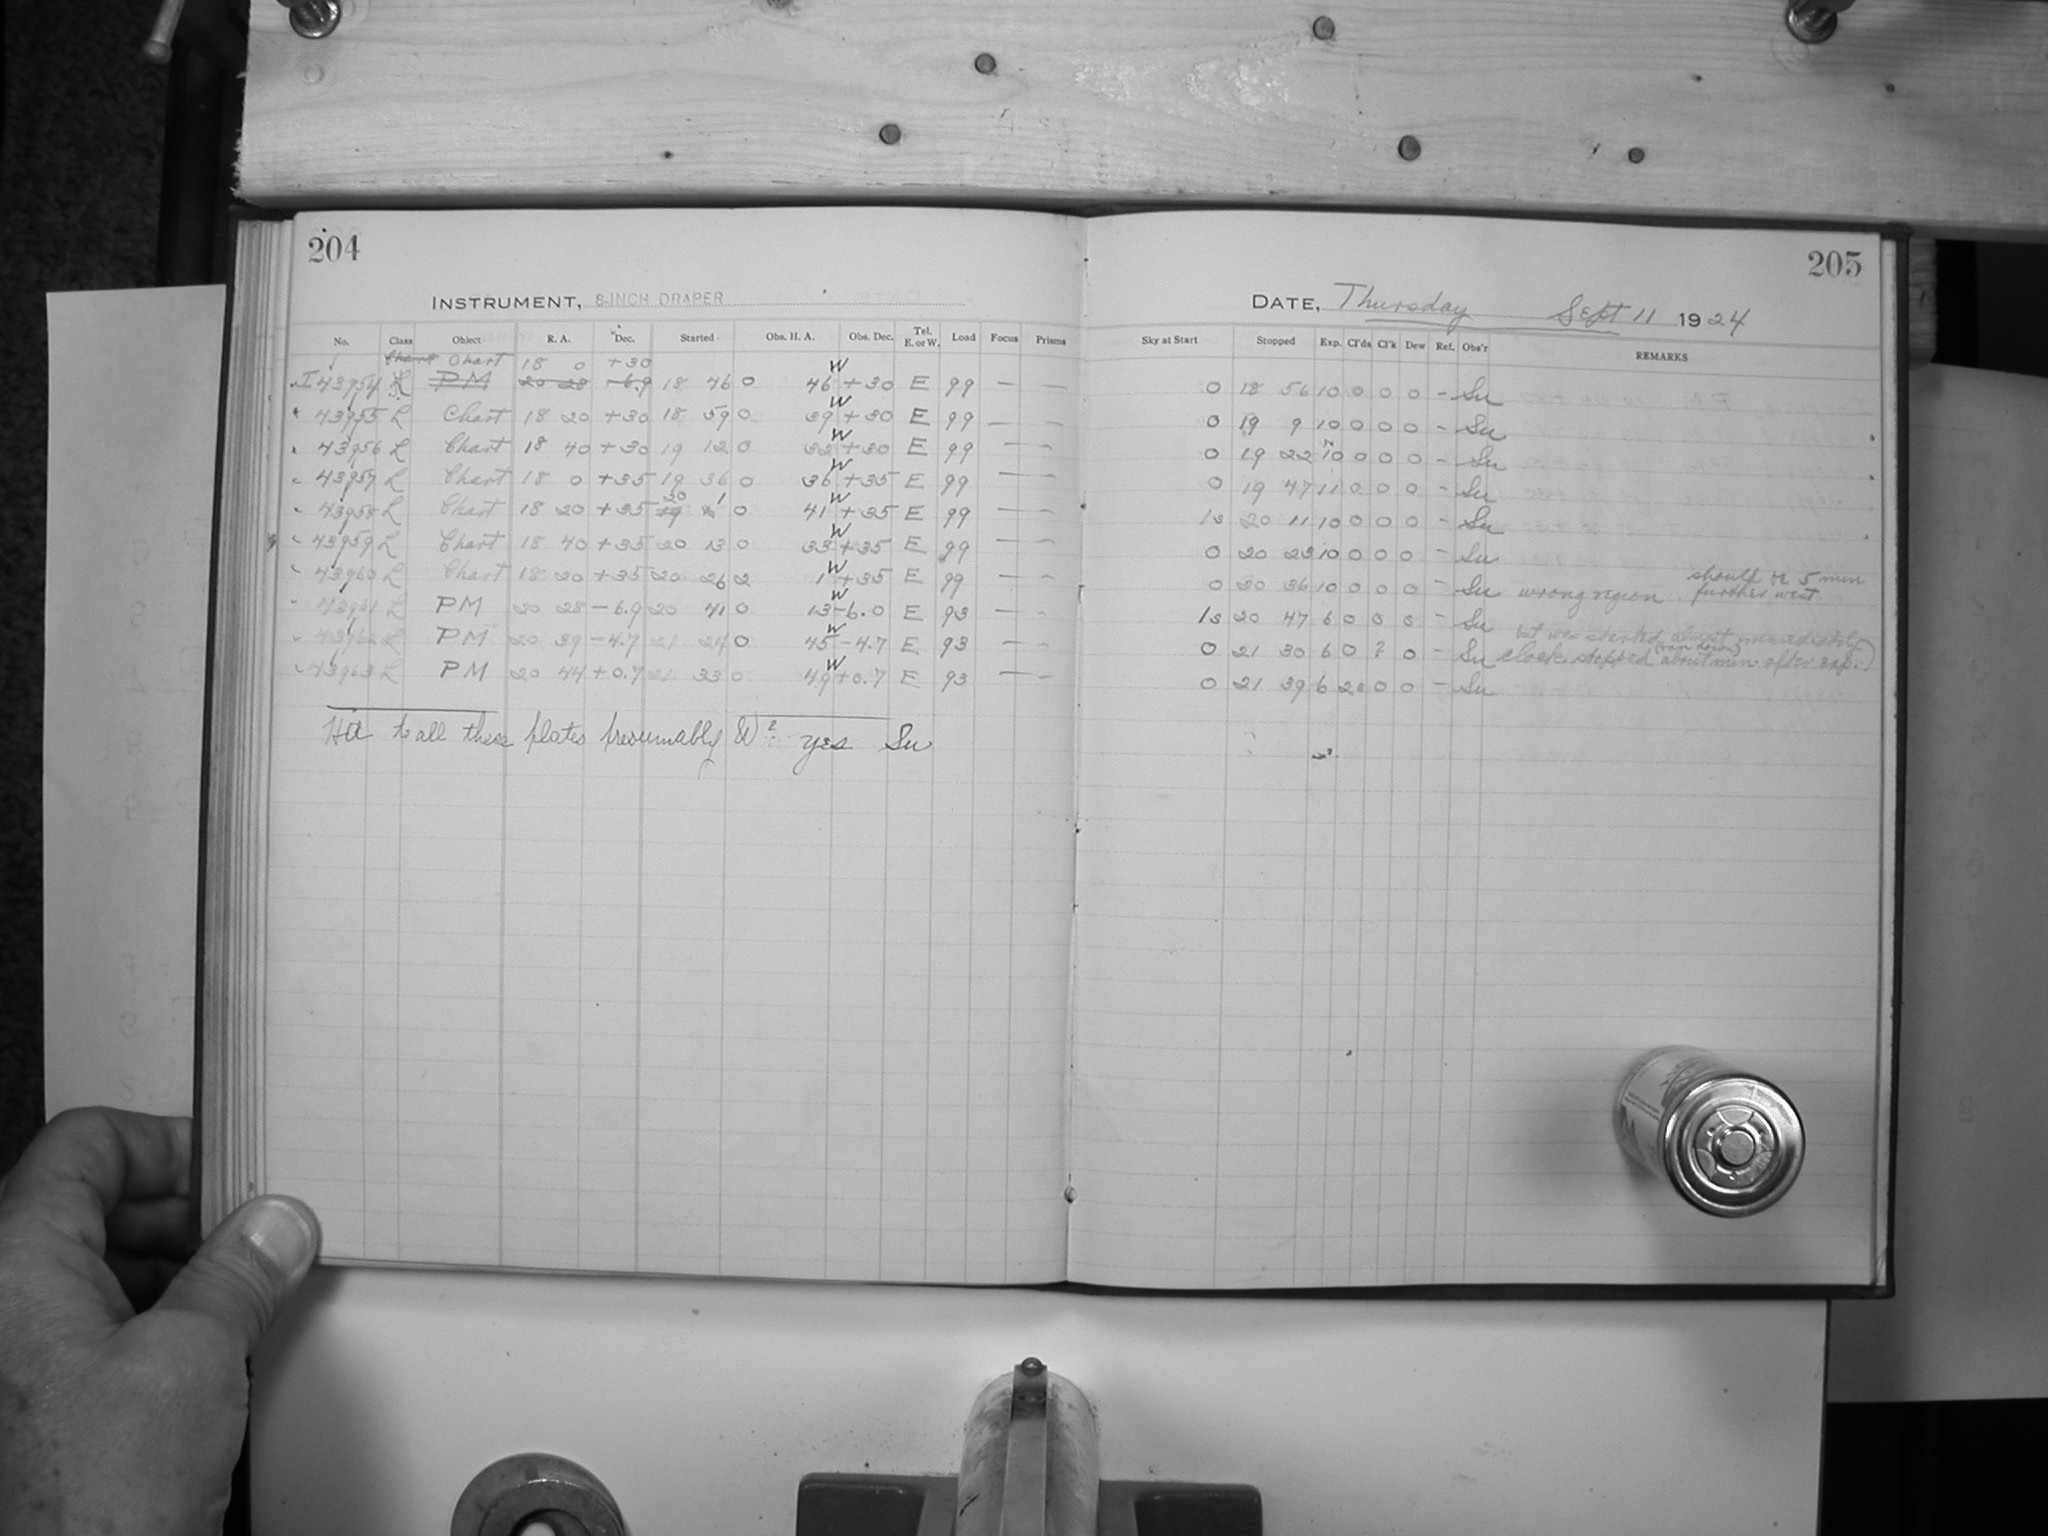 204
INSTRUMENT, 8-INCH DRAPER
No. Class Object R. A. Dec. Started Obs. H. A. Obs. Dec. Tel. E. or W. Load Focus Prisms
Chart Chart 18 0 +30
I 43954 L PM 20 28 -6.9 18 46 0 46 W +30 E 99 — —
43955 L Chart 18 20 +30 18 59 0 39 W +30 E 99 — —
43956 L Chart 18 40 +30 19 12 0 32 W +30 E 99 — —
43957 L Chart 18 0 +35 19 36 0 36 W +35 E 99 — —
43958 L Chart 18 20 +35 20 1 0 41 W +35 E 99 — —
43959 L Chart 18 40 +35 20 13 0 33 W +35 E 99 — —
43960 L Chart 18 20 +35 20 26 2 1 W +35 E 99 — —
43961 L PM 20 28 -6.9 20 41 0 13 W -6.0 E 93 — —
43962 L PM 20 39 -4.7 21 24 0 45 W -4.7 E 93 — —
43963 L PM 20 44 +0.7 21 33 0 49 W +0.7 E 93 — —
HA to all these plates presumably W? yes Su
205
DATE, Thursday Sept 11 1924
Sky at Start Stopped Exp. Cl'ds Cl'k Dew Ref. Obs'r REMARKS
0 18 56 10 0 0 0 - Su
0 19 9 10 0 0 0 - Su
0 19 22 10 0 0 0 - Su
0 19 47 11 0 0 0 - Su
1s 20 11 10 0 0 0 - Su
0 20 23 10 0 0 0 - Su
0 20 36 10 0 0 0 - Su wrong region should be 5 min further west
1s 20 47 6 0 0 0 - Su
but was started almost immediately
0 21 30 6 0 ? 0 - Su clock stopped (ran down) about min. after exp.)
0 21 39 6 2s 0 0 - Su